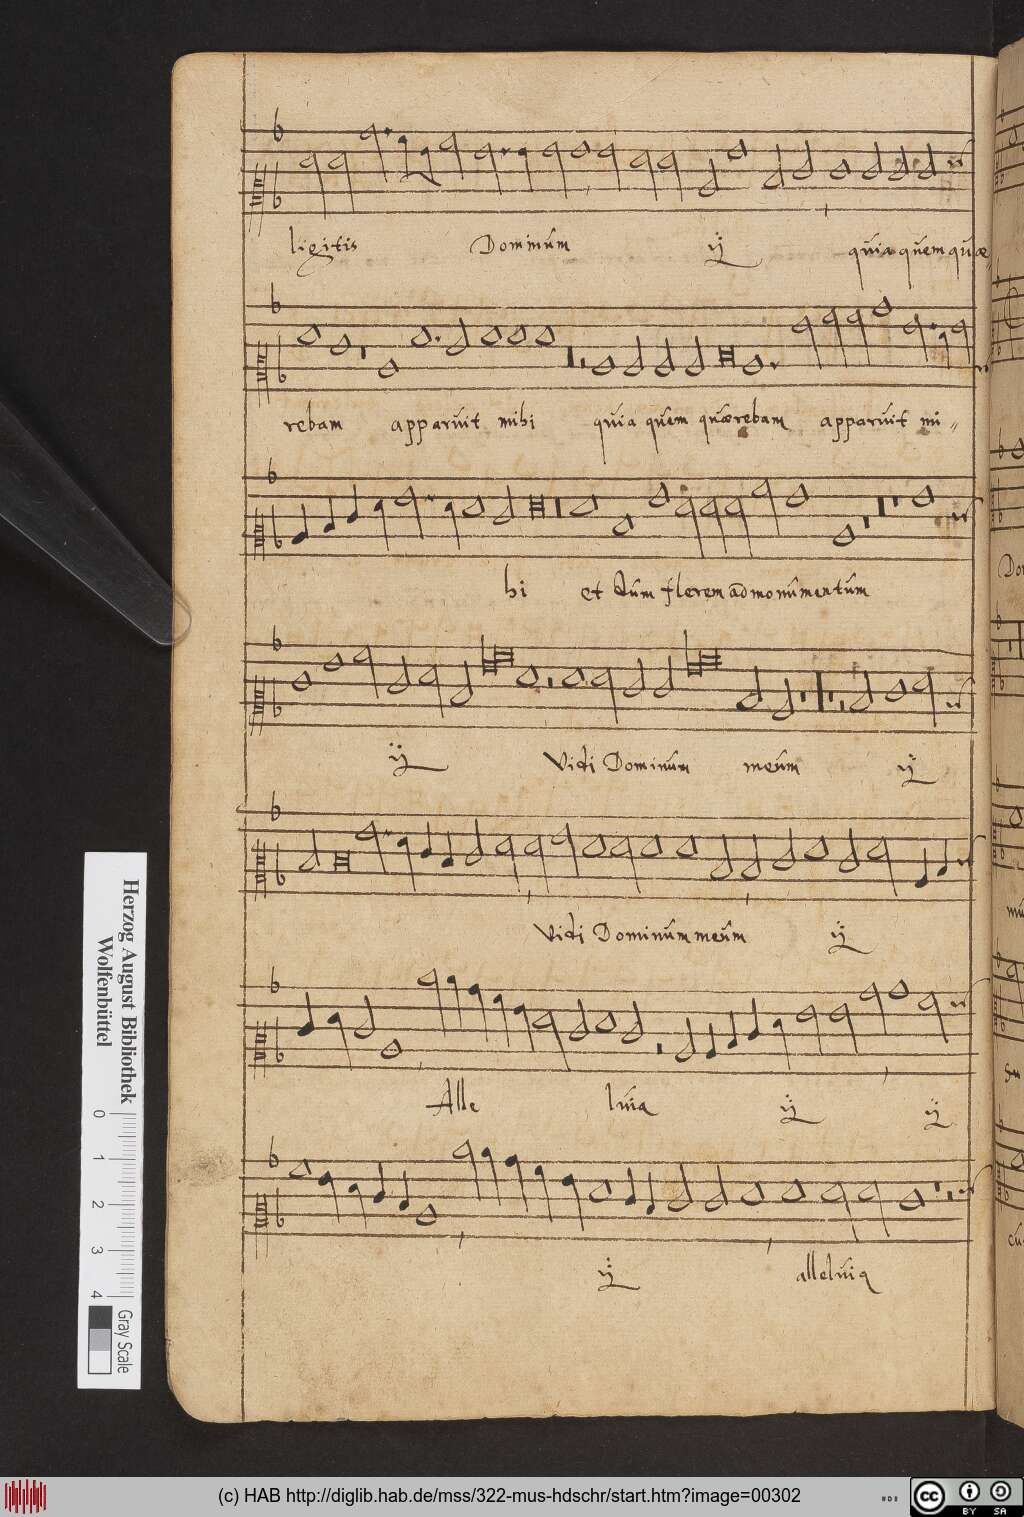 ligitis Dominum ij quia quem quæ-
rebam apparuit mihi quia quem quærebam apparuit mi-
hi et Dum flerem ad monumentum
ij Vidi Dominum meum ij
Vidi Dominum meum ij
Alle luia ij ij
ij alleluia
Herzog August Bibliothek
Wolfenbüttel
0 1 2 3 4
Gray Scale
(c) HAB http://diglib.hab.de/mss/322-mus-hdschr/start.htm?image=00302
cc BY SA